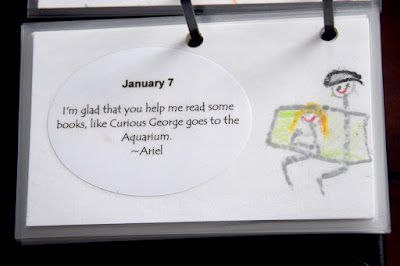 January 7
I'm glad that you help me read some
books, like Curious George goes to the
Aquarium.
~Ariel